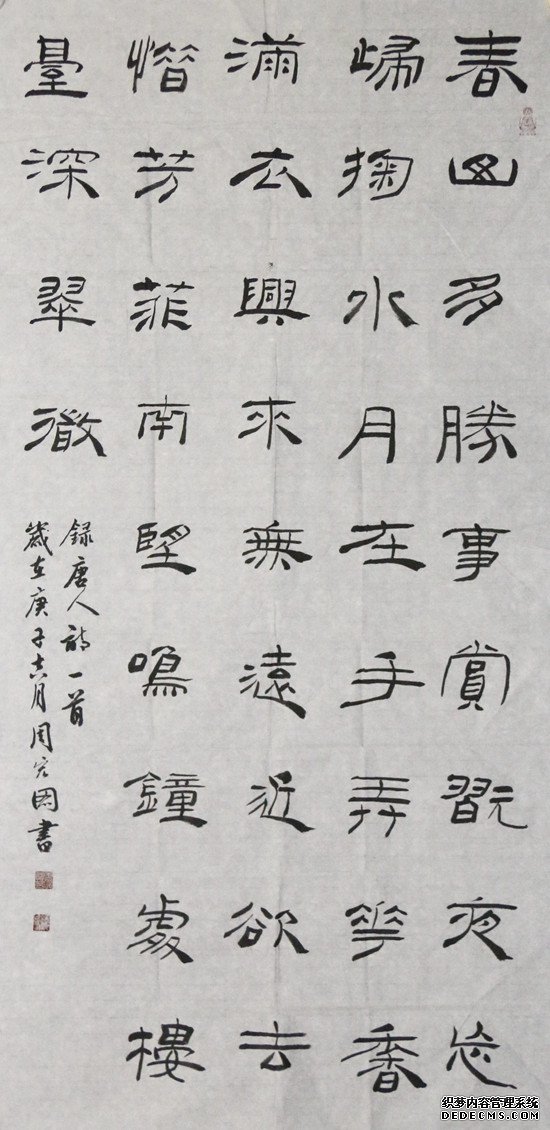 春山多勝事賞翫夜忘
歸掬水月在手弄花香
滿衣興來無遠近欲去
惜芳菲南望鳴鐘處樓
臺深翠微
録唐人詩一首
歲在庚子月周國書
织梦内容管理系统
DEDECMS.COM